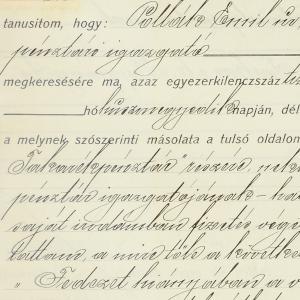 tanusitom, hogy: Pollák Emil ur,
pénztári igazgató
megkeresésére ma, azaz egyezerkilenczszáz
hó huszonnegyedik napján, dél
a melynek szószerinti másolata a tulsó oldalon
Takarékpénztár" részére, nek
pénztár igazgatójának - ha
saját irodámban fizetés vége
tattam, a mindőlk a követke
„Fedezet hiányában a v